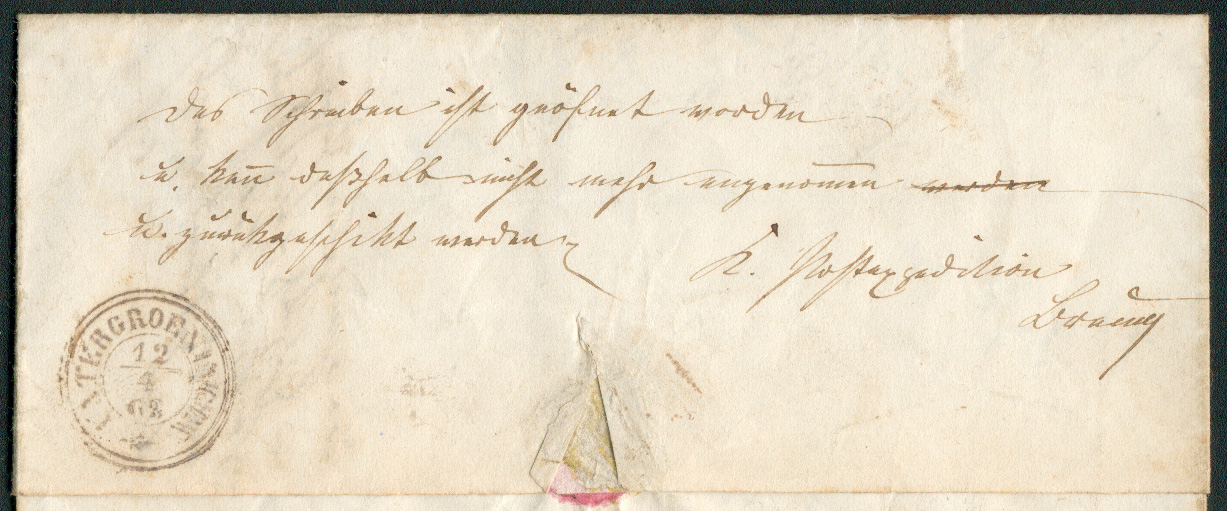 Das Schreiben ist geöfnet worden
u. kañ deßhalb nicht mehr angenom̄en werden
u. zurükgeschikt werden
K. Postexpedition
UNTERGROENINGEN
12
4
63